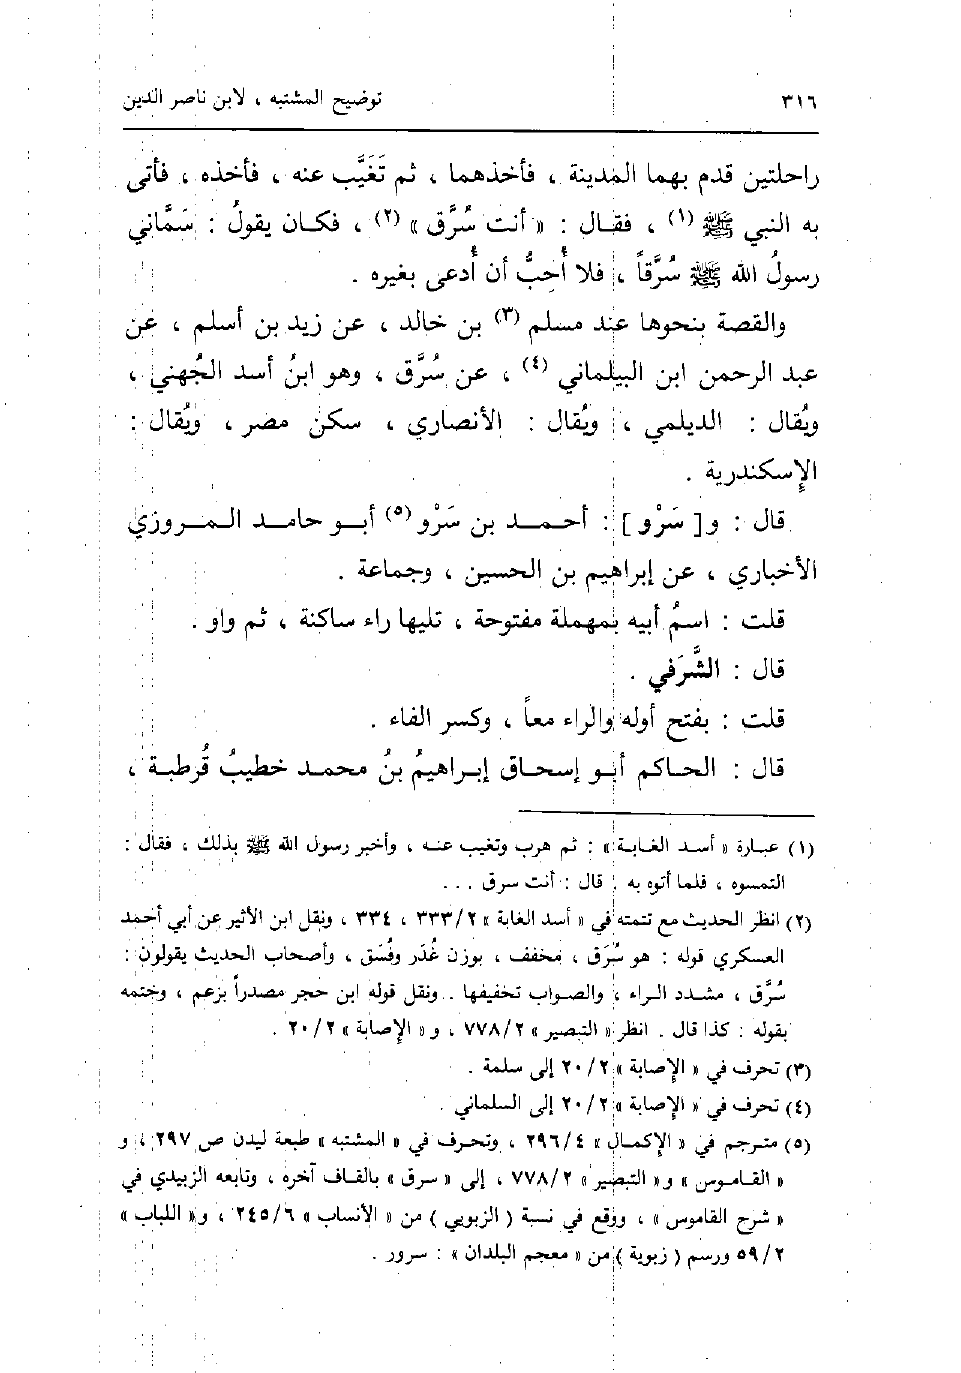 ٣١٦
توضيح المشتبه ، لابن ناصر الدين
راحلتين قدم بهما المدينة ، فأخذهما ، ثم تَغَيَّب عنه ، فأخذه ، فأتى
به النبي ﷺ (١) ، فقال : « أنت سُرَّق » (٢) ، فكان يقولُ : سَمَّاني
رسولُ الله ﷺ سُرَّقاً ، فلا أُحِبُّ أن أُدعى بغيره .
والقصة بنحوها عند مسلم (٣) بن خالد ، عن زيد بن أسلم ، عن
عبد الرحمن ابن البيلماني (٤) ، عن سُرَّق ، وهو ابنُ أسد الجُهني ،
ويُقال : الديلمي ، ويُقال : الأنصاري ، سكن مصر ، ويُقال :
الإسكندرية .
قال : و[ سَرْو ] : أحمد بن سَرْو (٥) أبو حامد المروزي
الأخباري ، عن إبراهيم بن الحسين ، وجماعة .
قلت : اسمُ أبيه بمهملة مفتوحة ، تليها راء ساكنة ، ثم واو .
قال : الشَّرَفي .
قلت : بفتح أوله والراء معاً ، وكسر الفاء .
قال : الحاكم أبو إسحاق إبراهيمُ بنُ محمد خطيبُ قُرطبة ،
(١) عبارة « أسد الغابة » : ثم هرب وتغيب عنه ، وأخبر رسول الله ﷺ بذلك ، فقال :
التمسوه ، فلما أتوه به قال : أنت سرق ...
(٢) انظر الحديث مع تتمته في « أسد الغابة » ٣٣٣/٢ ، ٣٣٤ ، ونقل ابن الأثير عن أبي أحمد
العسكري قوله : هو سُرَق ، مخفف ، بوزن غُدَر وفُسَق ، وأصحاب الحديث يقولون :
سُرَّق ، مشدد الراء ، والصواب تخفيفها . ونقل قوله ابن حجر مصدراً بزعم ، وختمه
بقوله : كذا قال . انظر « التبصير » ٧٧٨/٢ ، و« الإصابة » ٢٠/٢ .
(٣) تحرف في « الإصابة » ٢٠/٢ إلى سلمة .
(٤) تحرف في « الإصابة » ٢٠/٢ إلى السلماني .
(٥) مترجم في « الإكمال » ٢٩٦/٤ ، وتحرف في « المشتبه » طبعة ليدن ص ٢٩٧ ، و
« القاموس » و« التبصير » ٧٧٨/٢ ، إلى « سرق » بالقاف آخره ، وتابعه الزبيدي في
« شرح القاموس » ، ووقع في نسبة ( الزبويي ) من « الأنساب » ٢٤٥/٦ ، و« اللباب »
٥٩/٢ ورسم ( زبوية ) من « معجم البلدان » : سرور .